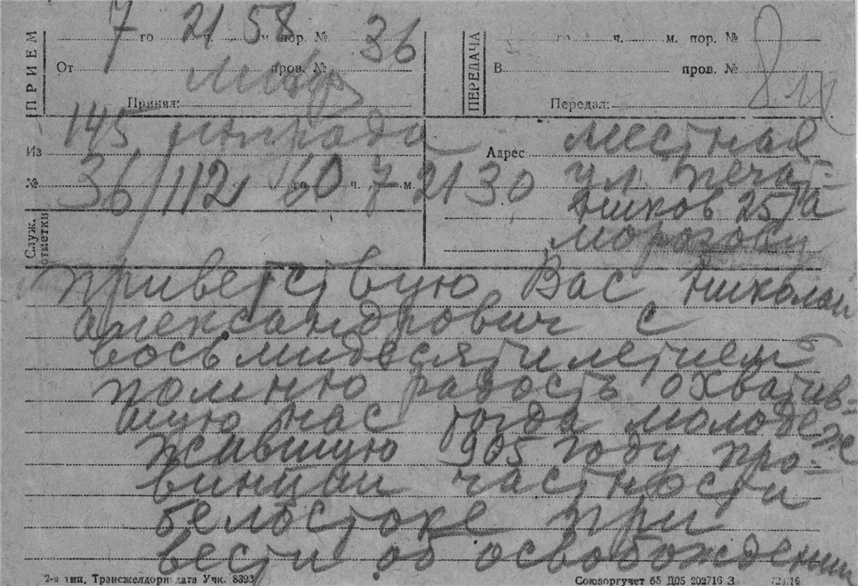 ПРИЕМ
7 го 21 ч. 58 м. пор. № 36
От пров. №
Принял:
ПЕРЕДАЧА
го ч. м. пор. №
В пров. №
Передал:
Из 145
№ 36/112 60 го ч. 7 м. 21 30
Служ. отметки
Адрес местная
ул печат-
ников 25а
морозову
приветствую Вас николай
александрович с
восьмидесятилетием
помню радость охватив-
шую нас тогда молодеж
жившую 905 году про-
винции частности
белостоке при
вести об освобождении
2-я тип. Трансжелдориздата Учк. 8393
Союзоргучет 65 Д05 202716 З.